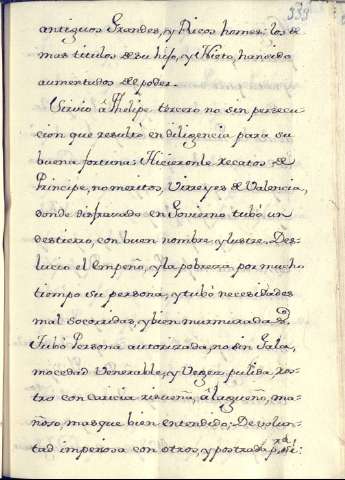 333
antiguos Grandes, y Ricos homes: los de
mas titulos de su hijo, y Nieto, han sido
aumentados de poder.
Sirvio â Phelipe tercero no sin persecu
cion que resultò en diligencia para su
buena fortuna: Hicieronle recatos, de
Principe, no meritos, Virreyes de Valencia,
donde disfravado en Govierno tubò un
destierro, con buen nombre, y lustre. Des-
lucio el empeño, y la pobreza, por mucho
tiempo su persona, y tubò necesidades
mal socorridas, y bien murmuradas.
Tubò Persona autorizada, no sin Gala,
mocedad Venerable, y Vegez pulida, ros-
tro con caricia risueña, âlagueño, ma-
ñoso, mas que bien entendido; De volun-
tad impeñosa con otros, y postrada p.ª si: